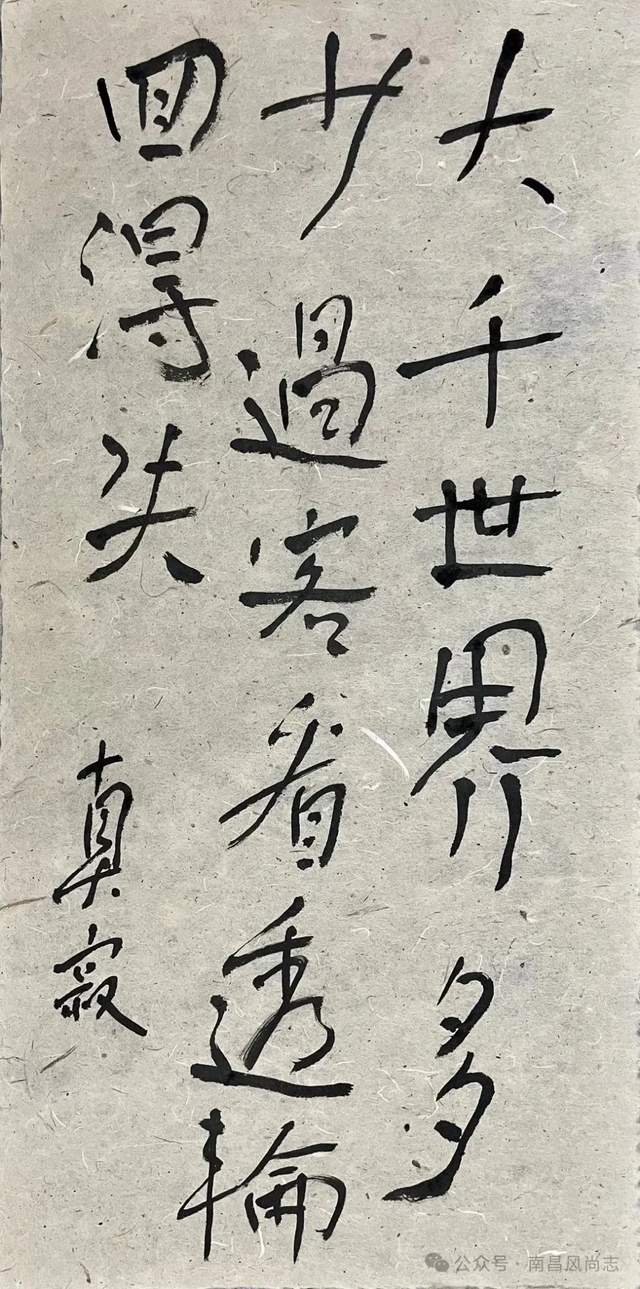 大千世界多
少過客看透輪
回得失
真寂
公众号·南昌风尚志